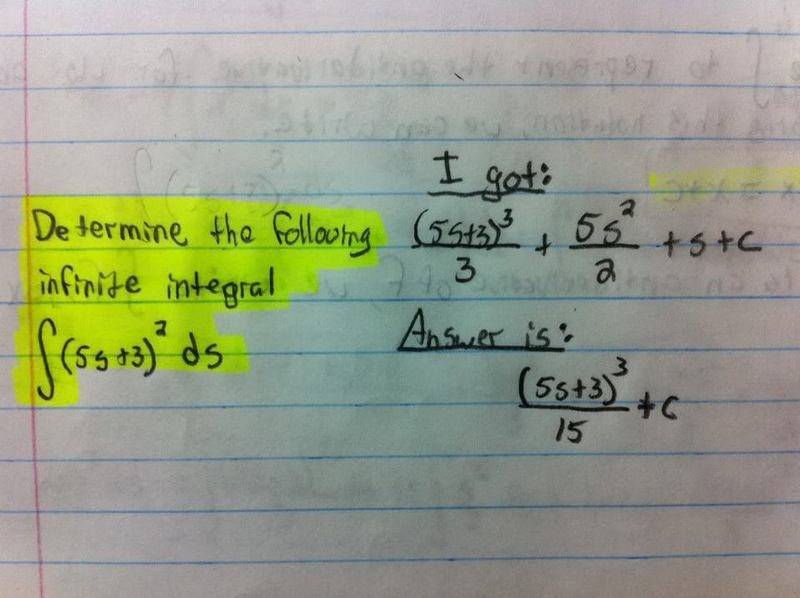 Determine the following
infinite integral
∫(5s+3)² ds
I got:
(5s+3)³/3 + 5s²/2 + s + c
Answer is:
(5s+3)³/15 + c